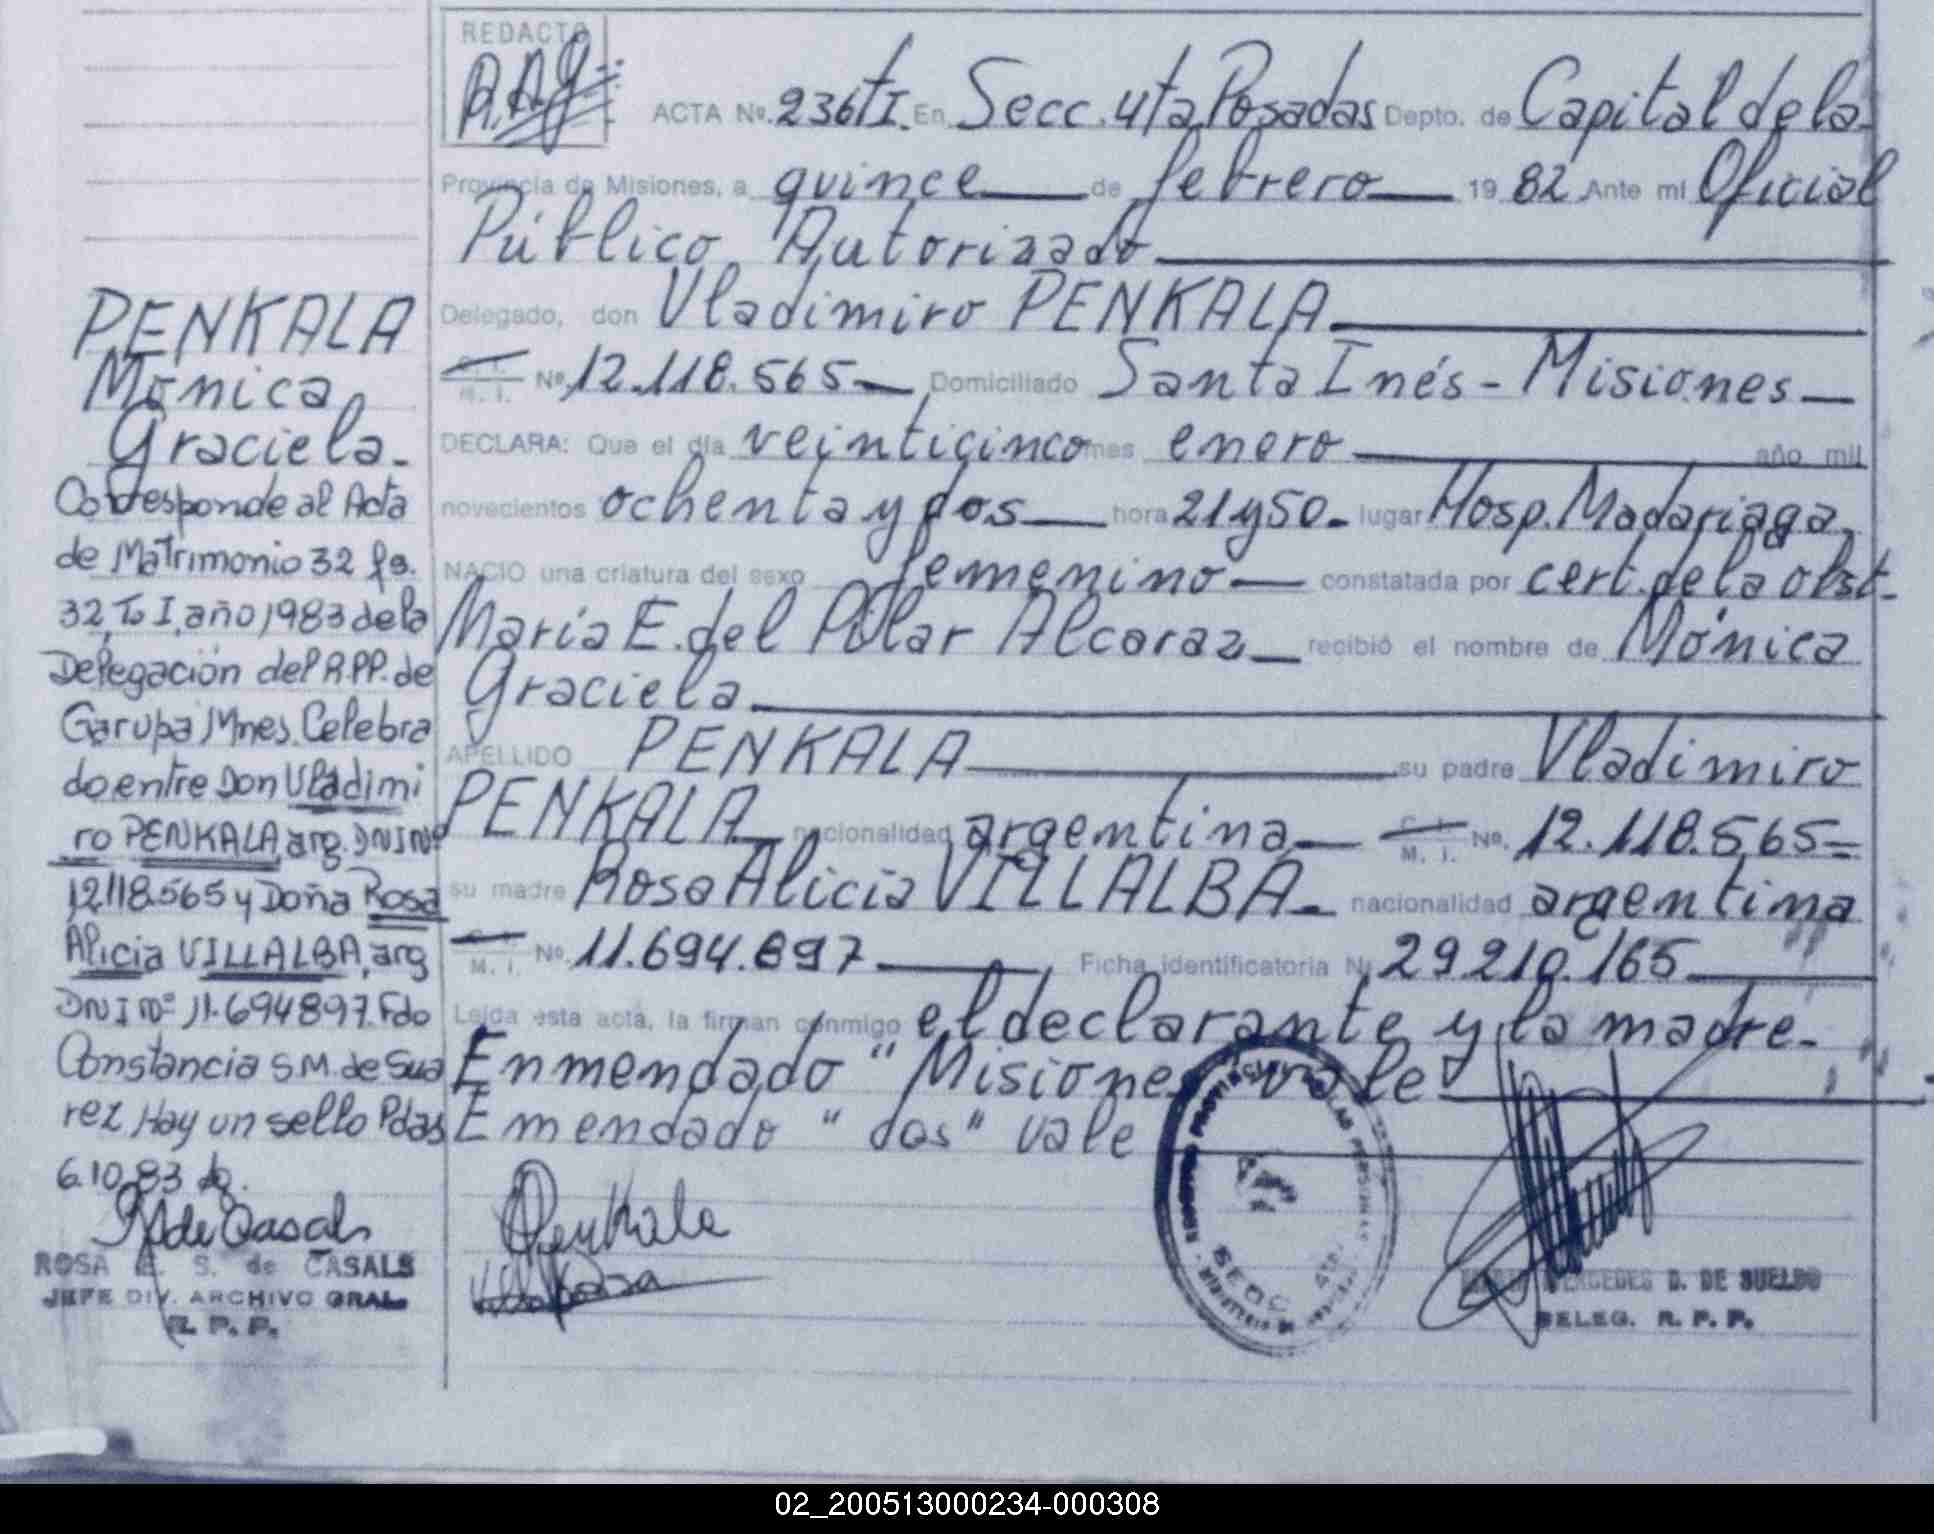 PENKALA
Mónica
Graciela.
Corresponde al Acta
de Matrimonio 32 fs.
32, To I, año 1983 de la
Delegación del R.PP. de
Garupá Mnes. Celebra
do entre Don Vladimi
ro PENKALA, arg. DNI Nº
12.118.565 y Doña Rosa
Alicia VILLALBA, arg
DNI Nº 11.694897. Fdo
Constancia S.M. de Sua
rez Hay un sello Pdas
6.10.83
ROSA E. S. de CASALS
JEFE DIV. ARCHIVO GRAL.
R. P. P.
REDACTO
ACTA Nº. 236 tI. En Secc. 4ta Posadas Depto. de Capital de la
Provincia de Misiones, a quince de febrero 19 82 Ante mí Oficial
Público Autorizado
Delegado, don Vladimiro PENKALA
M. I. Nº. 12.118.565 Domiciliado Santa Inés - Misiones
DECLARA: Que el día veinticinco mes enero año mil
novecientos ochenta y dos hora 21 y 50. lugar Hosp. Madariaga
NACIO una criatura del sexo femenino constatada por cert. de la obst.
María E. del Pilar Alcaraz recibió el nombre de Mónica
Graciela
APELLIDO PENKALA su padre Vladimiro
PENKALA nacionalidad argentina C. I. M. I. Nº. 12.118.565
su madre Rosa Alicia VILLALBA nacionalidad argentina
M. I. Nº. 11.694.897, Ficha identificatoria Nº 29.210.165
Leída esta acta, la firman conmigo el declarante y la madre.
Enmendado "Misiones" vale
Emendado "dos" vale
Penkala
REGISTRO PROVINCIAL DE LAS PERSONAS
SECC. 4ta.
MERCEDES D. DE SUELDO
DELEG. R. P. P.
02_200513000234-000308